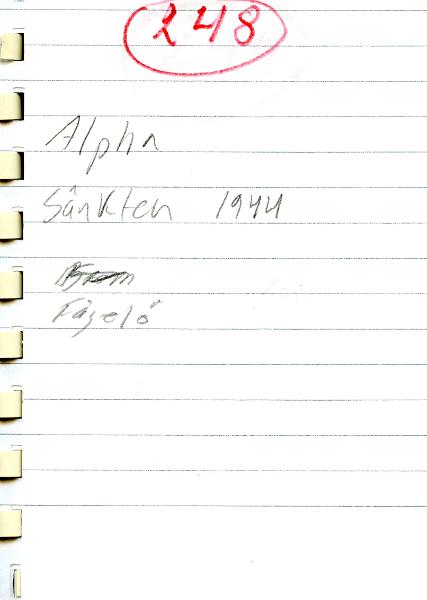 248
Alpha
Sänkten 1944
Fågelö